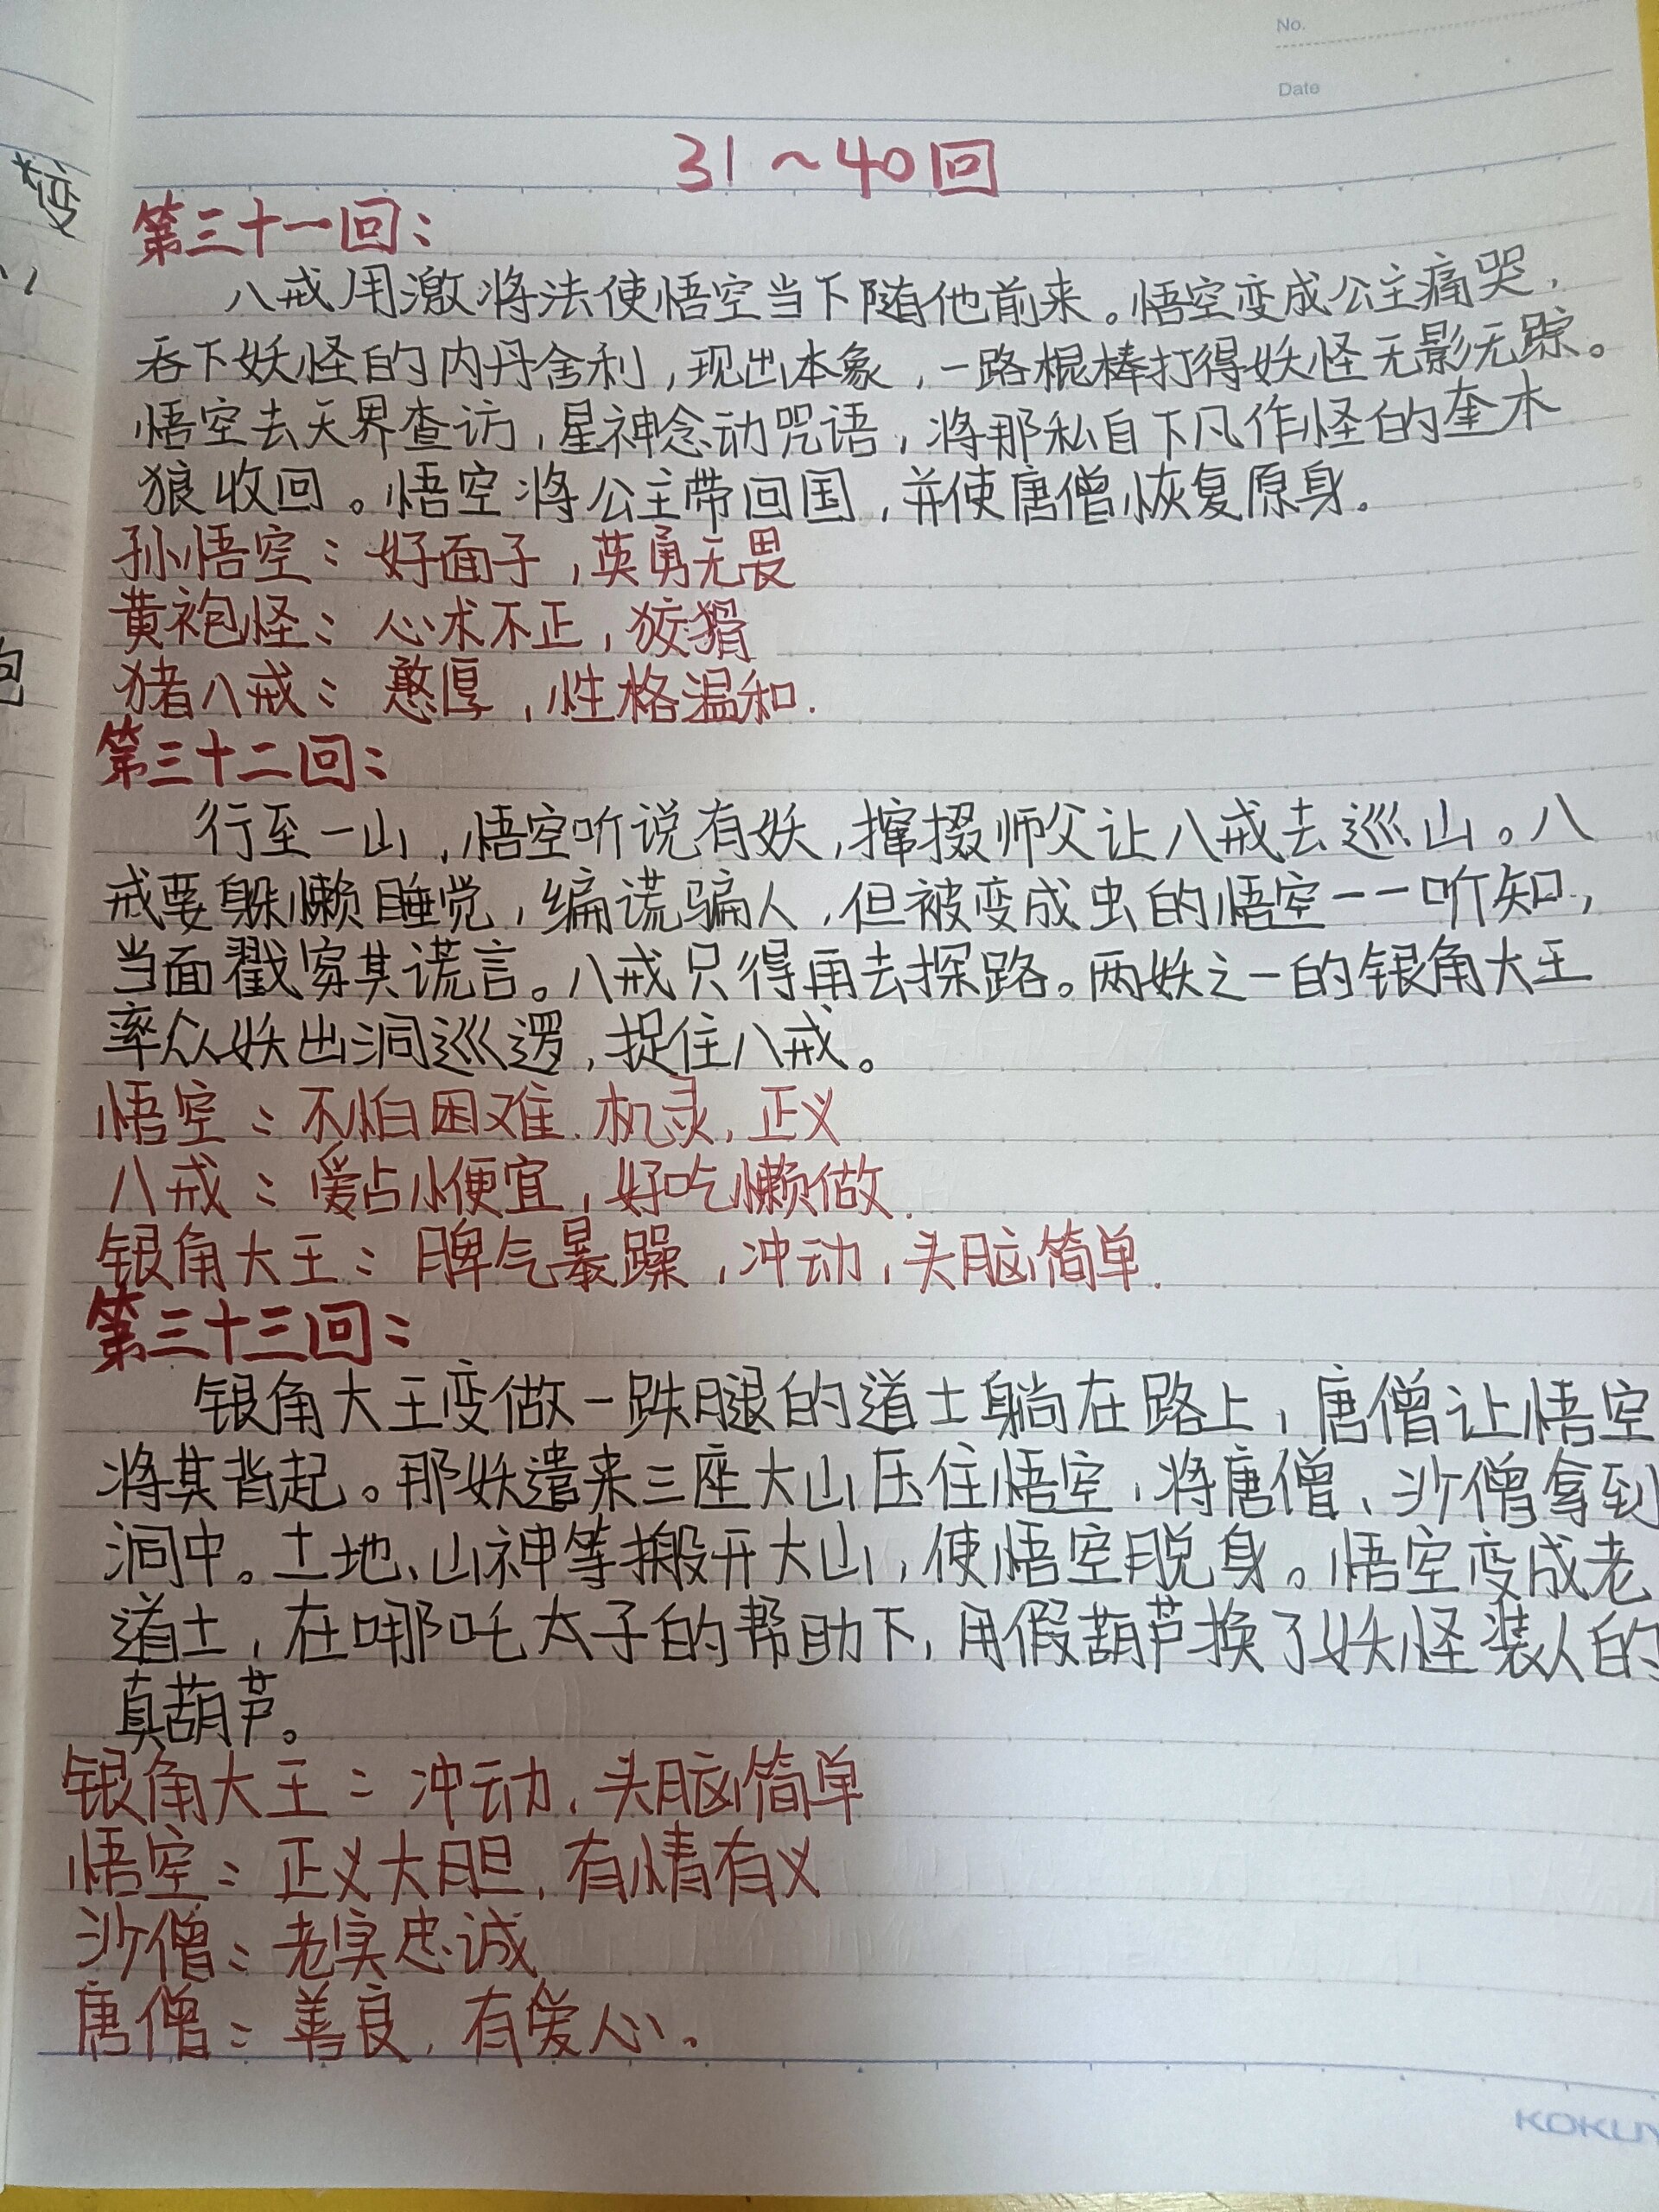 No.
Date
31～40回
第三十一回：
八戒用激将法使悟空当下随他前来。悟空变成公主痛哭，
吞下妖怪的内丹舍利，现出本象，一路棍棒打得妖怪无影无踪。
悟空去天界查访，星神念动咒语，将那私自下凡作怪的奎木
狼收回。悟空将公主带回国，并使唐僧恢复原身。
孙悟空：好面子，英勇无畏
黄袍怪：心术不正，狡猾
猪八戒：憨厚，性格温和.
第三十二回：
行至一山，悟空听说有妖，撺掇师父让八戒去巡山。八
戒要躲懒睡觉，编谎骗人，但被变成虫的悟空一一听知，
当面戳穿其谎言。八戒只得再去探路。两妖之一的银角大王
率众妖出洞巡逻，捉住八戒。
悟空：不怕困难.机灵，正义
八戒：爱占小便宜，好吃懒做.
银角大王：脾气暴躁，冲动，头脑简单.
第三十三回：
银角大王变做一跌腿的道士躺在路上，唐僧让悟空
将其背起。那妖遣来三座大山压住悟空，将唐僧、沙僧拿到
洞中。土地、山神等搬开大山，使悟空脱身。悟空变成老
道士，在哪吒太子的帮助下，用假葫芦换了妖怪装人的
真葫芦。
银角大王：冲动，头脑简单
悟空：正义大胆，有情有义
沙僧：老实忠诚
唐僧：善良，有爱心。
KOKUY